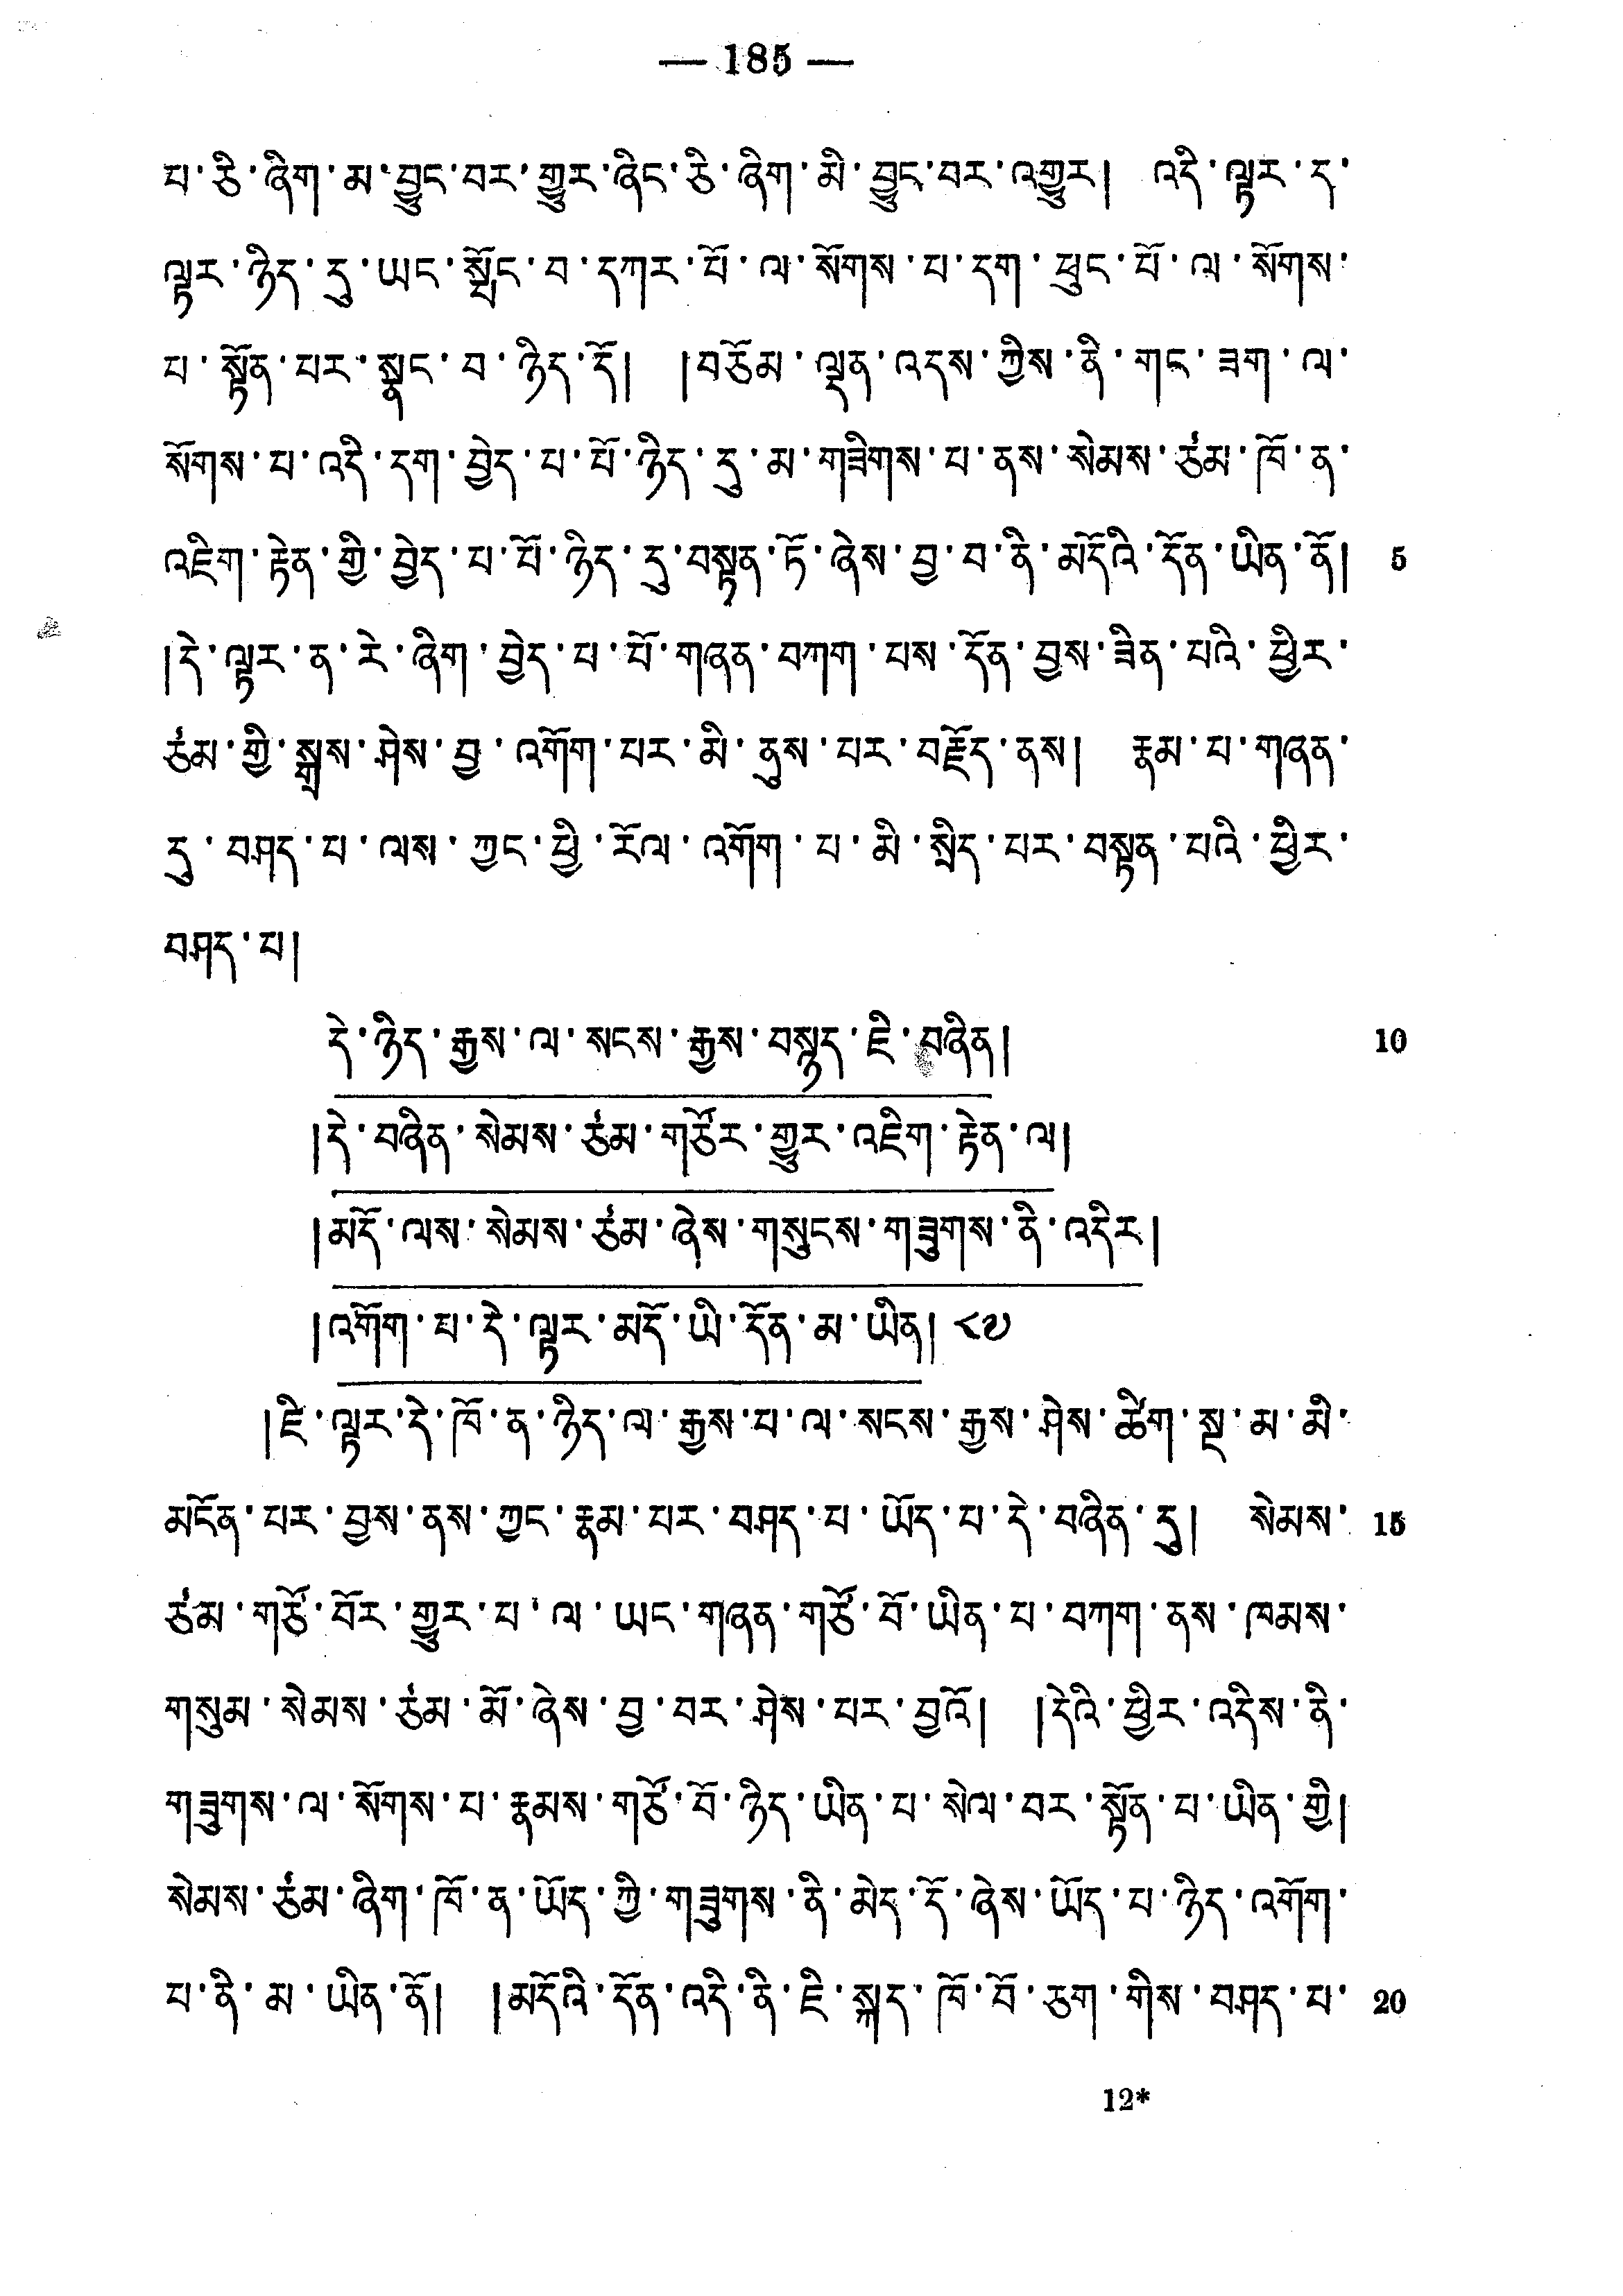 — 185 —
པ་ཅི་ཞིག་མ་བྱུང་བར་གྱུར་ཞིང་ཅི་ཞིག་མི་བྱུང་བར་འགྱུར། འདི་ལྟར་ད་
ལྟར་ཉིད་དུ་ཡང་སློང་བ་དཀར་པོ་ལ་སོགས་པ་དག་ཕུང་པོ་ལ་སོགས་
པ་སྟོན་པར་སྣང་བ་ཉིད་དོ། །བཅོམ་ལྡན་འདས་ཀྱིས་ནི་གང་ཟག་ལ་
སོགས་པ་འདི་དག་བྱེད་པ་པོ་ཉིད་དུ་མ་གཟིགས་པ་ནས་སེམས་ཙམ་ཁོ་ན་
འཇིག་རྟེན་གྱི་བྱེད་པ་པོ་ཉིད་དུ་བསྟན་ཏོ་ཞེས་བྱ་བ་ནི་མདོའི་དོན་ཡིན་ནོ། 5
།དེ་ལྟར་ན་རེ་ཞིག་བྱེད་པ་པོ་གཞན་བཀག་པས་དོན་བྱས་ཟིན་པའི་ཕྱིར་
ཙམ་གྱི་སྒྲས་ཤེས་བྱ་འགོག་པར་མི་ནུས་པར་བརྗོད་ནས། རྣམ་པ་གཞན་
དུ་བཤད་པ་ལས་ཀྱང་ཕྱི་རོལ་འགོག་པ་མི་སྲིད་པར་བསྟན་པའི་ཕྱིར་
བཤད་པ།
དེ་ཉིད་རྒྱས་ལ་སངས་རྒྱས་བསྙད་ཇི་བཞིན། 10
།དེ་བཞིན་སེམས་ཙམ་གཙོར་གྱུར་འཇིག་རྟེན་ལ།
།མདོ་ལས་སེམས་ཙམ་ཞེས་གསུངས་གཟུགས་ནི་འདིར།
།འགོག་པ་དེ་ལྟར་མདོ་ཡི་དོན་མ་ཡིན། ༨༧
།ཇི་ལྟར་དེ་ཁོ་ན་ཉིད་ལ་རྒྱས་པ་ལ་སངས་རྒྱས་ཤེས་ཚིག་སྔ་མ་མི་
མངོན་པར་བྱས་ནས་ཀྱང་རྣམ་པར་བཤད་པ་ཡོད་པ་དེ་བཞིན་དུ། སེམས་ 15
ཙམ་གཙོ་བོར་གྱུར་པ་ལ་ཡང་གཞན་གཙོ་བོ་ཡིན་པ་བཀག་ནས་ཁམས་
གསུམ་སེམས་ཙམ་མོ་ཞེས་བྱ་བར་ཤེས་པར་བྱའོ། །དེའི་ཕྱིར་འདིས་ནི་
གཟུགས་ལ་སོགས་པ་རྣམས་གཙོ་བོ་ཉིད་ཡིན་པ་སེལ་བར་སྟོན་པ་ཡིན་གྱི།
སེམས་ཙམ་ཞིག་ཁོ་ན་ཡོད་ཀྱི་གཟུགས་ནི་མེད་དོ་ཞེས་ཡོད་པ་ཉིད་འགོག་
པ་ནི་མ་ཡིན་ནོ། །མདོའི་དོན་འདི་ནི་ཇི་སྐད་ཁོ་བོ་ཅག་གིས་བཤད་པ་ 20
12*